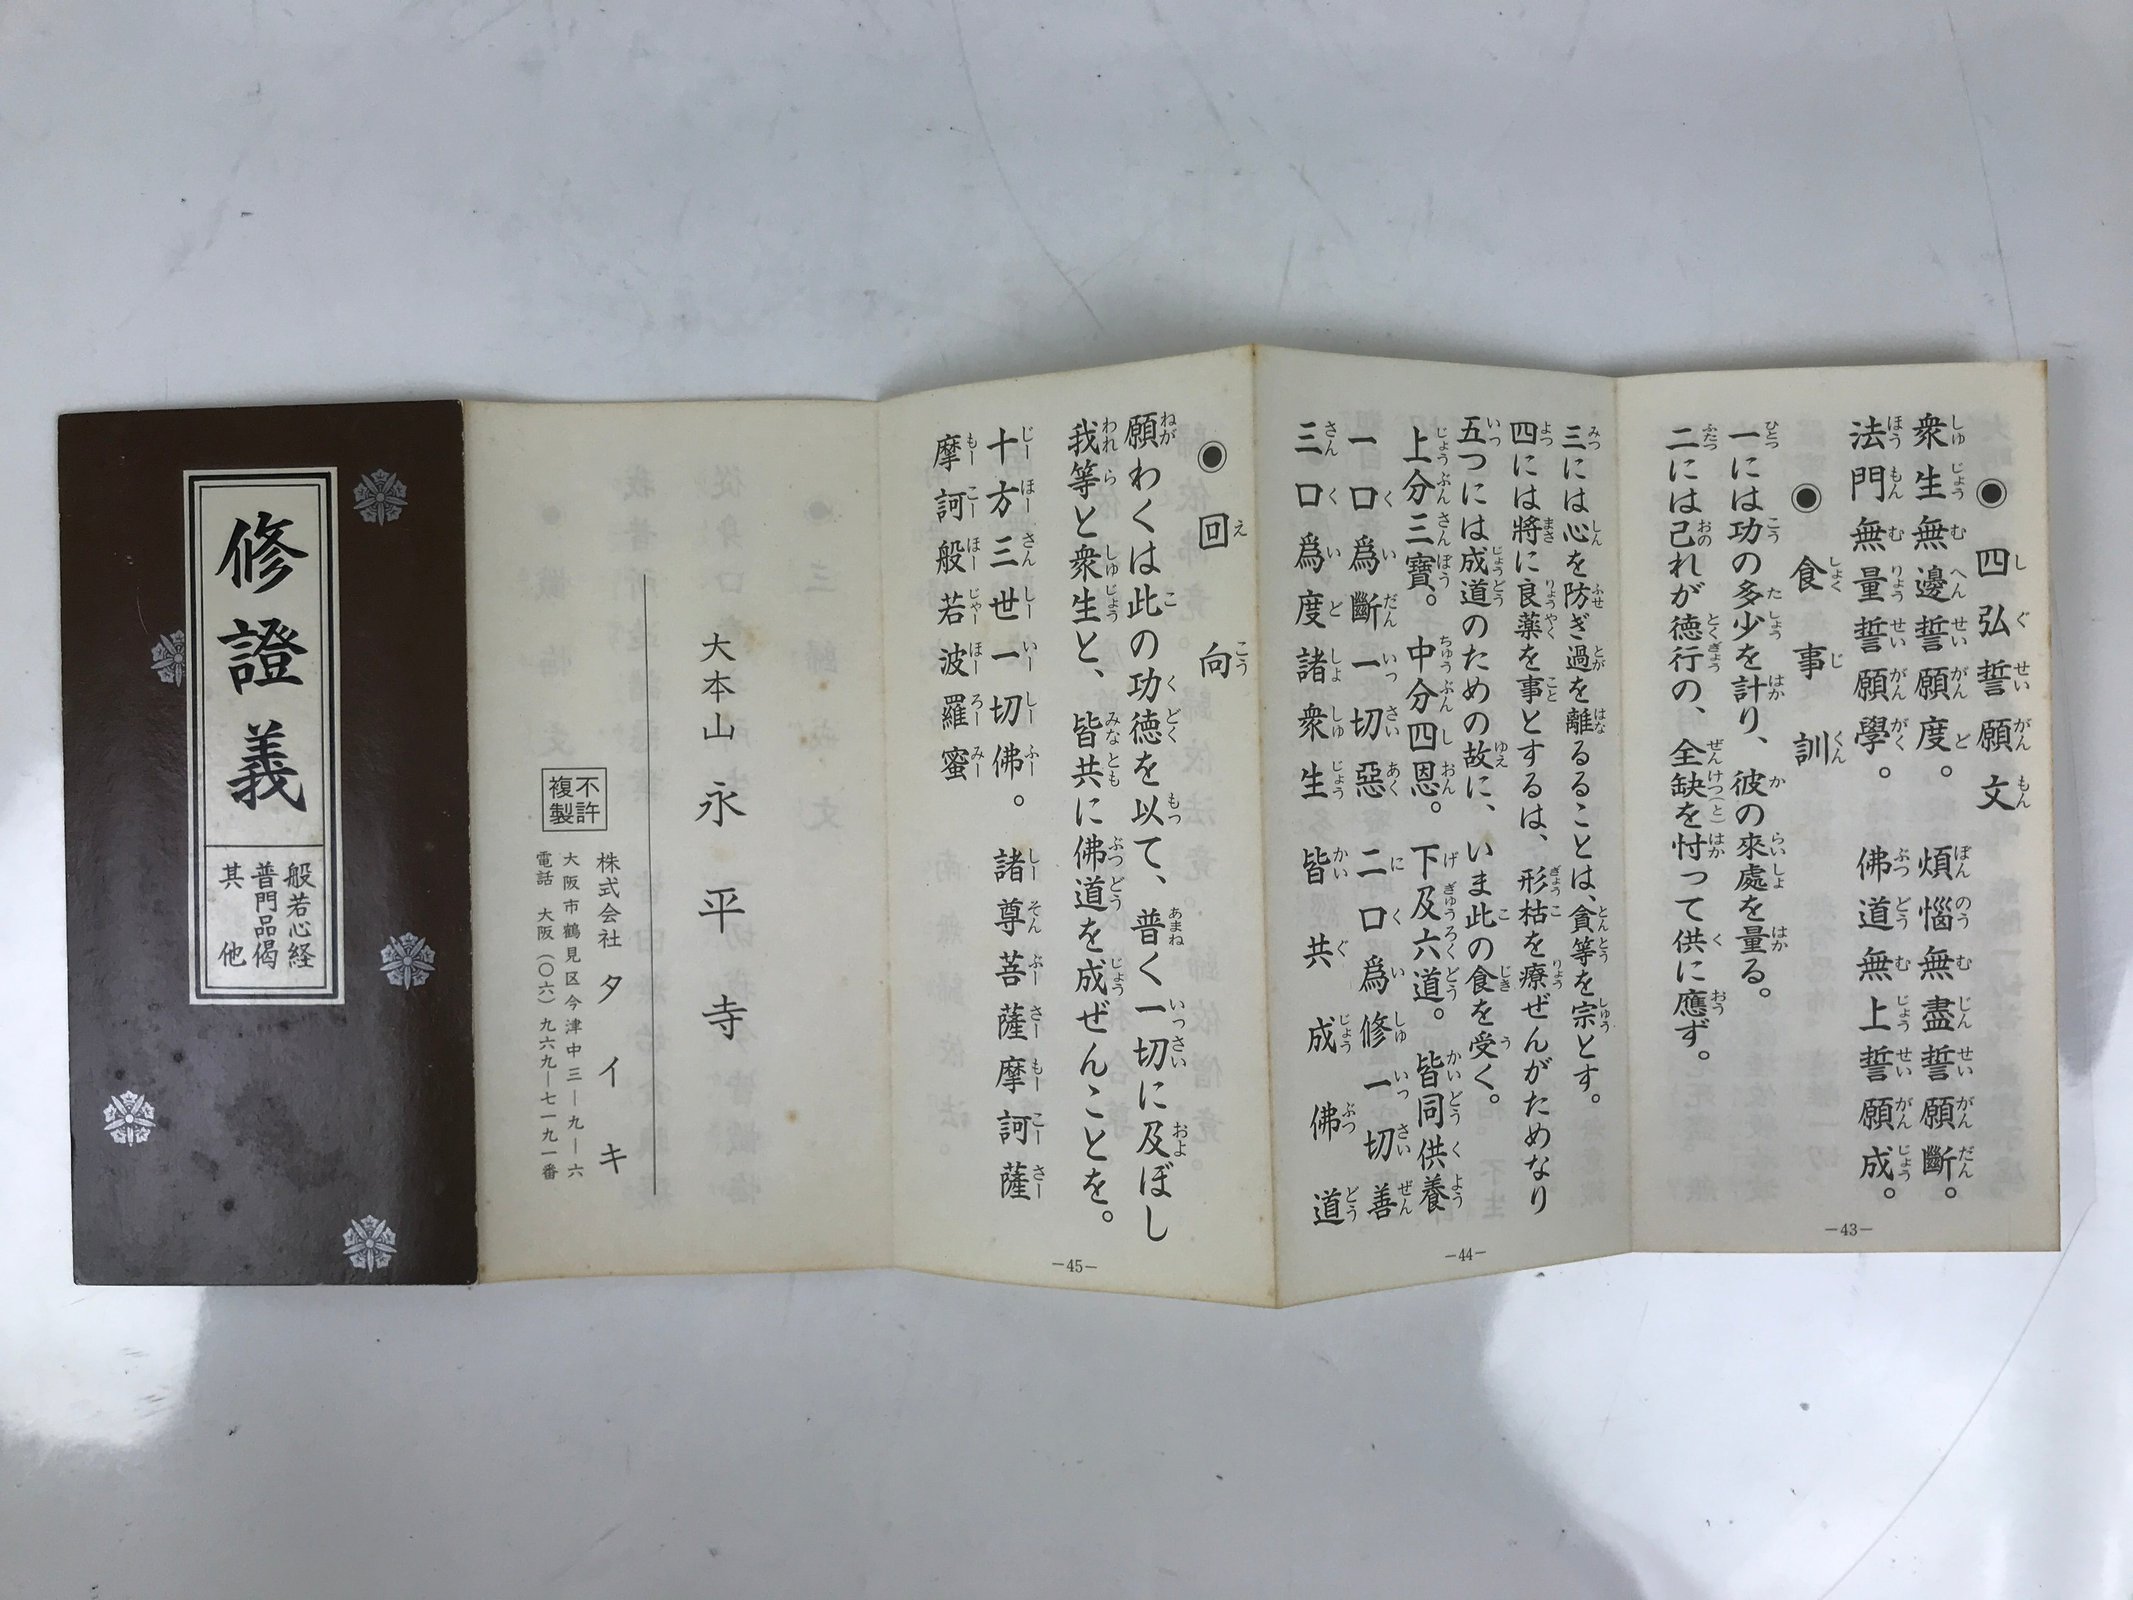 四弘誓願文
衆生無邊誓願度。 煩惱無盡誓願斷。
法門無量誓願學。 佛道無上誓願成。
食事訓
一には功の多少を計り、彼の來處を量る。
二には己れが徳行の、全缺を忖って供に應ず。
－43－
三には心を防ぎ過を離るることは、貪等を宗とす。
四には將に良薬を事とするは、形枯を療ぜんがためなり
五つには成道のための故に、いま此の食を受く。
上分三寶。 中分四恩。 下及六道。 皆同供養
一口爲斷一切惡 二口爲修一切善
三口爲度諸衆生 皆共成佛道
－44－
回向
願わくは此の功徳を以て、普く一切に及ぼし
我等と衆生と、皆共に佛道を成ぜんことを。
十方三世一切佛。 諸尊菩薩摩訶薩
摩訶般若波羅蜜
－45－
大本山 永平寺
不許複製
株式会社 タイキ
大阪市鶴見区今津中三―九―六
電話 大阪(〇六)九六九―七一九一番
修證義
般若心経
普門品偈
其他